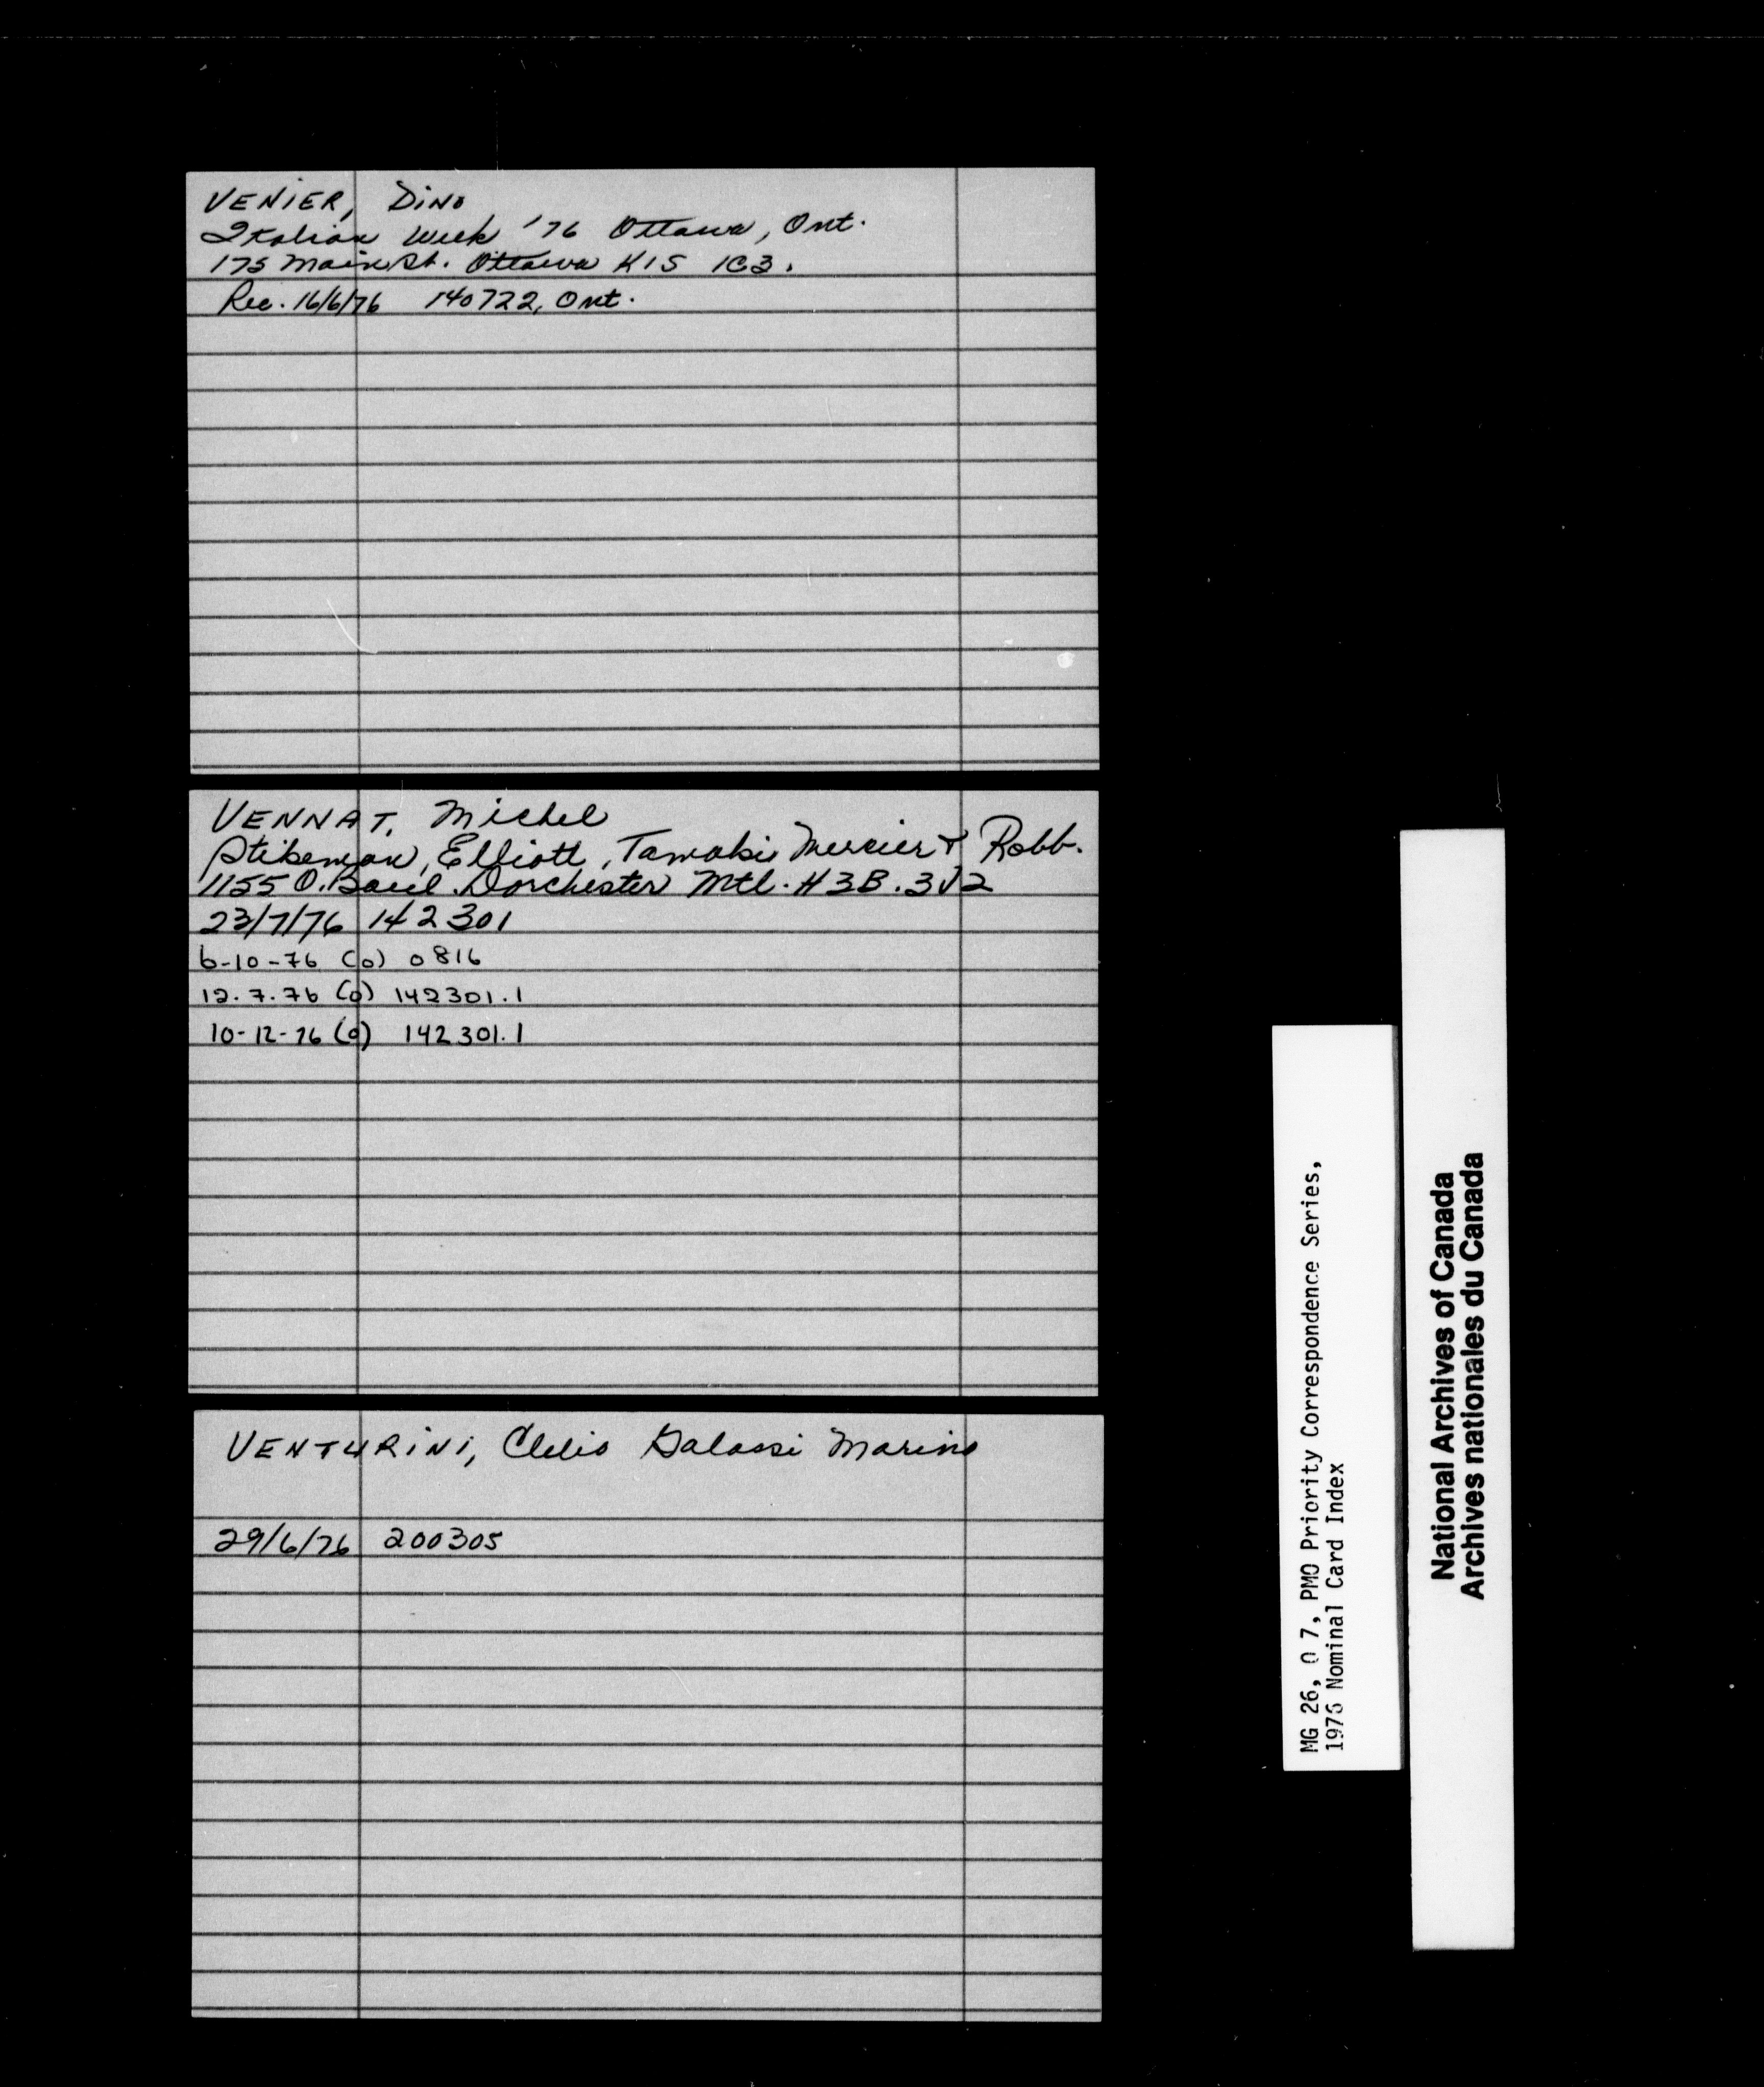 VENIER, Dino
Italian Week '76 Ottawa, Ont.
175 Main St. Ottawa K1S 1C3.
Rec. 16/6/76 140722, Ont.
VENNAT, Michel
Stikeman, Elliott, Tamaki Mercier & Robb.
1155 O. Boul. Dorchester Mtl. H3B.3V2
23/7/76 142301
6-10-76 (o) 0816
12.7.76 (o) 142301.1
10-12-76 (o) 142301.1
VENTURINI, Clelio Galassi Marino
29/6/76 200305
MG 26, O 7, PMO Priority Correspondence Series,
1976 Nominal Card Index
National Archives of Canada
Archives nationales du Canada